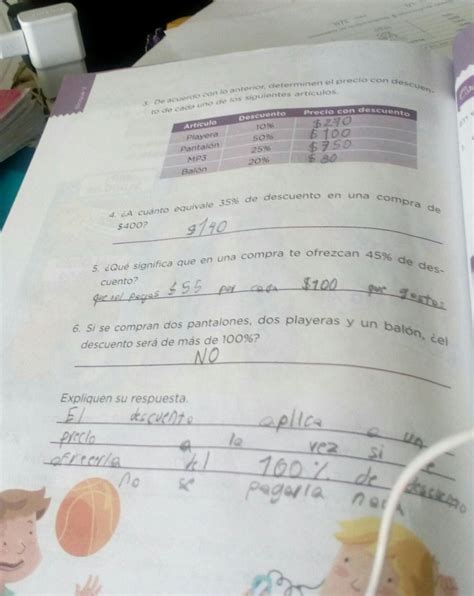 3. De acuerdo con lo anterior, determinen el precio con descuen-
to de cada uno de los siguientes artículos.
Artículo Descuento Precio con descuento
Playera 10% $ 290
Pantalón 50% $ 100
MP3 25% $ 750
Balón 20% $ 80
4. ¿A cuánto equivale 35% de descuento en una compra de
$400?
5. ¿Qué significa que en una compra te ofrezcan 45% de des-
cuento?
que sol pagas $55 por cada $100 que gastes
6. Si se compran dos pantalones, dos playeras y un balón, ¿el
descuento será de más de 100%?
NO
Expliquen su respuesta.
El descuento aplica a un
precio a la vez si se
ofreceria del 100% de descuento
no se pagaria nada